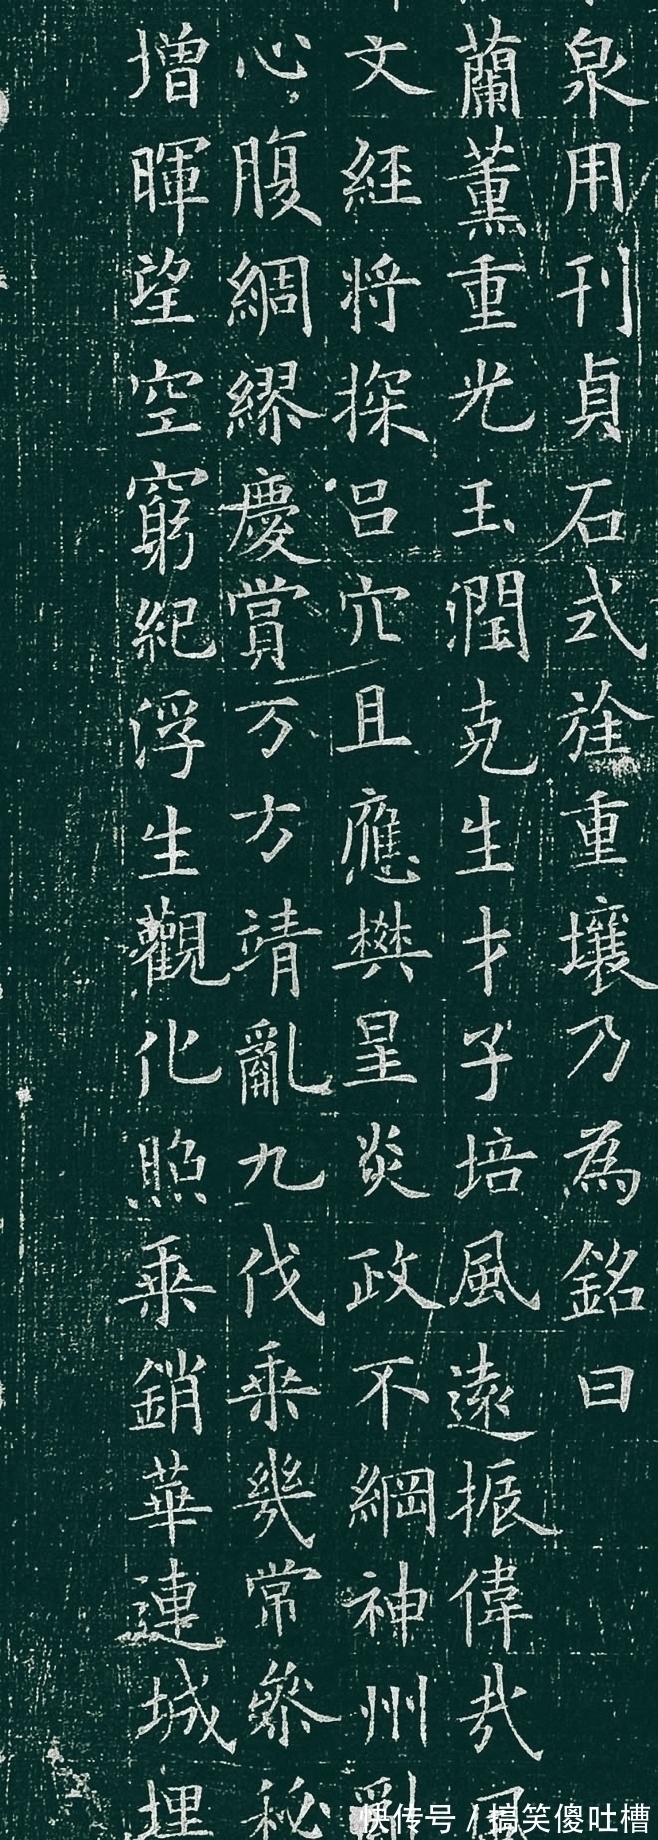 泉用刊貞石式旌重壤乃為銘曰
蘭薰重光玉潤克生才子培風遠振偉哉
文經將探呂穴且應樊星炎政不綱神州
心腹綢繆慶賞万方靖亂九伐乘幾常參秘
增暉望空窮紀浮生觀化照乘銷華連城埋
快传号/搞笑傻吐槽